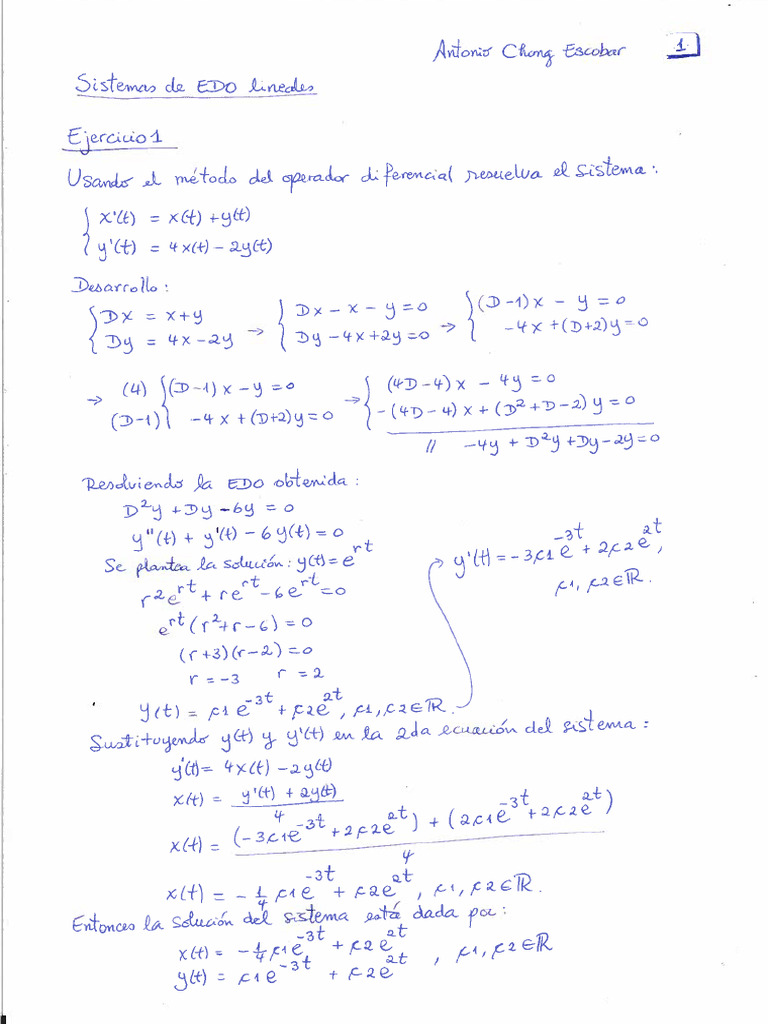 Antonio Chong Escobar 1
Sistemas de EDO lineales
Ejercicio 1
Usando el método del operador diferencial resuelva el sistema:
{ x'(t) = x(t) + y(t)
y'(t) = 4x(t) - 2y(t)
Desarrollo:
{ Dx = x + y → { Dx - x - y = 0 → { (D-1)x - y = 0
Dy = 4x - 2y Dy - 4x + 2y = 0 -4x + (D+2)y = 0
→ (4) { (D-1)x - y = 0 → { (4D-4)x - 4y = 0
(D-1) -4x + (D+2)y = 0 -(4D-4)x + (D²+D-2)y = 0
// -4y + D²y + Dy - 2y = 0
Resolviendo la EDO obtenida:
D²y + Dy - 6y = 0
y''(t) + y'(t) - 6y(t) = 0
Se plantea la solución: y(t) = e^rt
r²e^rt + re^rt - 6e^rt = 0
e^rt(r² + r - 6) = 0
(r+3)(r-2) = 0
r = -3 r = 2
y(t) = k1e^-3t + k2e^2t, k1, k2 ∈ ℝ.
y'(t) = -3k1e^-3t + 2k2e^2t,
k1, k2 ∈ ℝ.
Sustituyendo y(t) y y'(t) en la 2da ecuación del sistema:
y'(t) = 4x(t) - 2y(t)
x(t) = y'(t) + 2y(t)
4
x(t) = (-3k1e^-3t + 2k2e^2t) + (2k1e^-3t + 2k2e^2t)
4
x(t) = -1/4 k1e^-3t + k2e^2t, k1, k2 ∈ ℝ.
Entonces la solución del sistema está dada por:
x(t) = -1/4 k1e^-3t + k2e^2t
y(t) = k1e^-3t + k2e^2t , k1, k2 ∈ ℝ